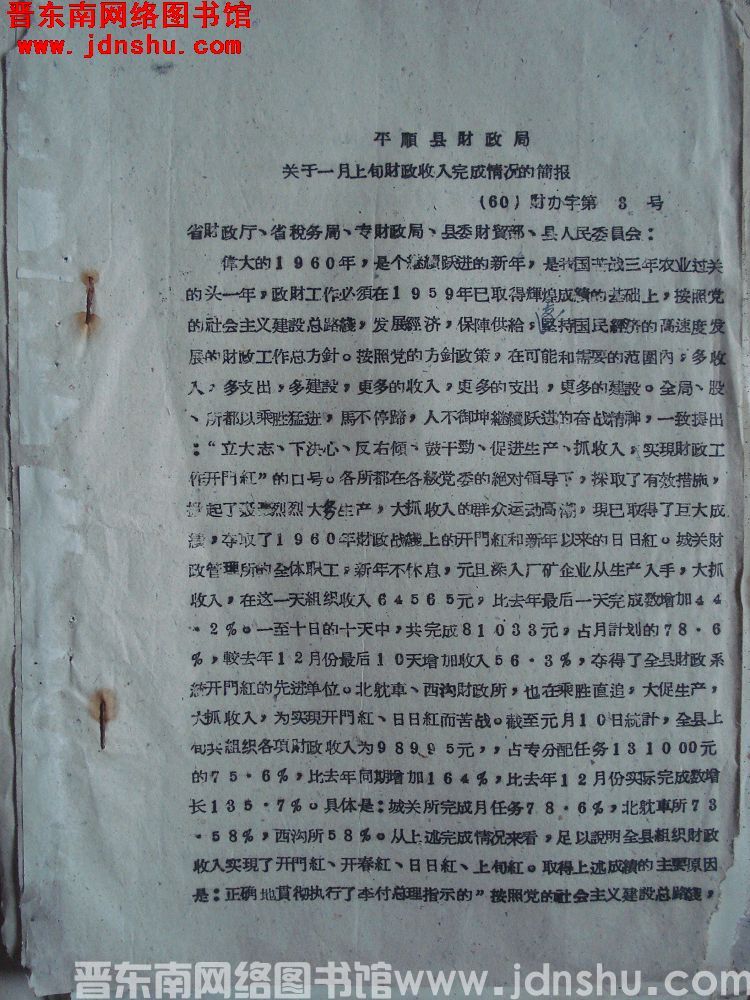 晋东南网络图书馆
www.jdnshu.com
平順县財政局
关于一月上旬財政收入完成情况的简报
(60)财办字第 3 号
省財政厅、省稅务局、专財政局、县委財貿部、县人民委員会：
偉大的1960年，是个継續跃进的新年，是我国苦战三年农业过关
的头一年，政財工作必須在1959年已取得輝煌成績的基础上，按照党
的社会主义建設总路綫，发展經济，保障供給，坚持国民經济的高速度发
展的財政工作总方針。按照党的方針政策，在可能和需要的范圍內，多收
入，多支出，多建設，更多的收入，更多的支出，更多的建設。全局、股
、所都以乘胜猛进，馬不停蹄，人不御坤継續跃进的奋战精神，一致提出
：“立大志、下决心、反右傾、鼓干勁、促进生产、抓收入，实現財政工
作开門紅”的口号。各所都在各級党委的絕对領导下，採取了有效措施，
起了轰轰烈烈大务生产，大抓收入的群众运动高潮，現已取得了巨大成
績，夺取了1960年財政战綫上的开門紅和新年以来的日日紅。城关財
政管理所的全体职工，新年不休息，元旦深入厂矿企业从生产入手，大抓
收入，在这一天組织收入64565元，比去年最后一天完成数增加44
·2%。一至十日的十天中，共完成81033元，占月計划的78·6
%，較去年12月份最后10天增加收入56·3%，夺得了全县財政系
統开門紅的先进单位。北躭車、西沟財政所，也在乘胜直追，大促生产，
大抓收入，为实現开門紅、日日紅而苦战。截至元月10日統計，全县上
旬共組织各項財政收入为98995元，，占专分配任务131000元
的75·6%，比去年同期增加164%，比去年12月份实际完成数增
长135·7%。具体是：城关所完成月任务78·6%，北躭車所73
·58%，西沟所58%。从上述完成情况来看，足以說明全县組织財政
收入实現了开門紅、开春紅、日日紅、上旬紅。取得上述成績的主要原因
是：正确地貫彻执行了李付总理指示的”按照党的社会主义建設总路綫，
晋东南网络图书馆www.jdnshu.com